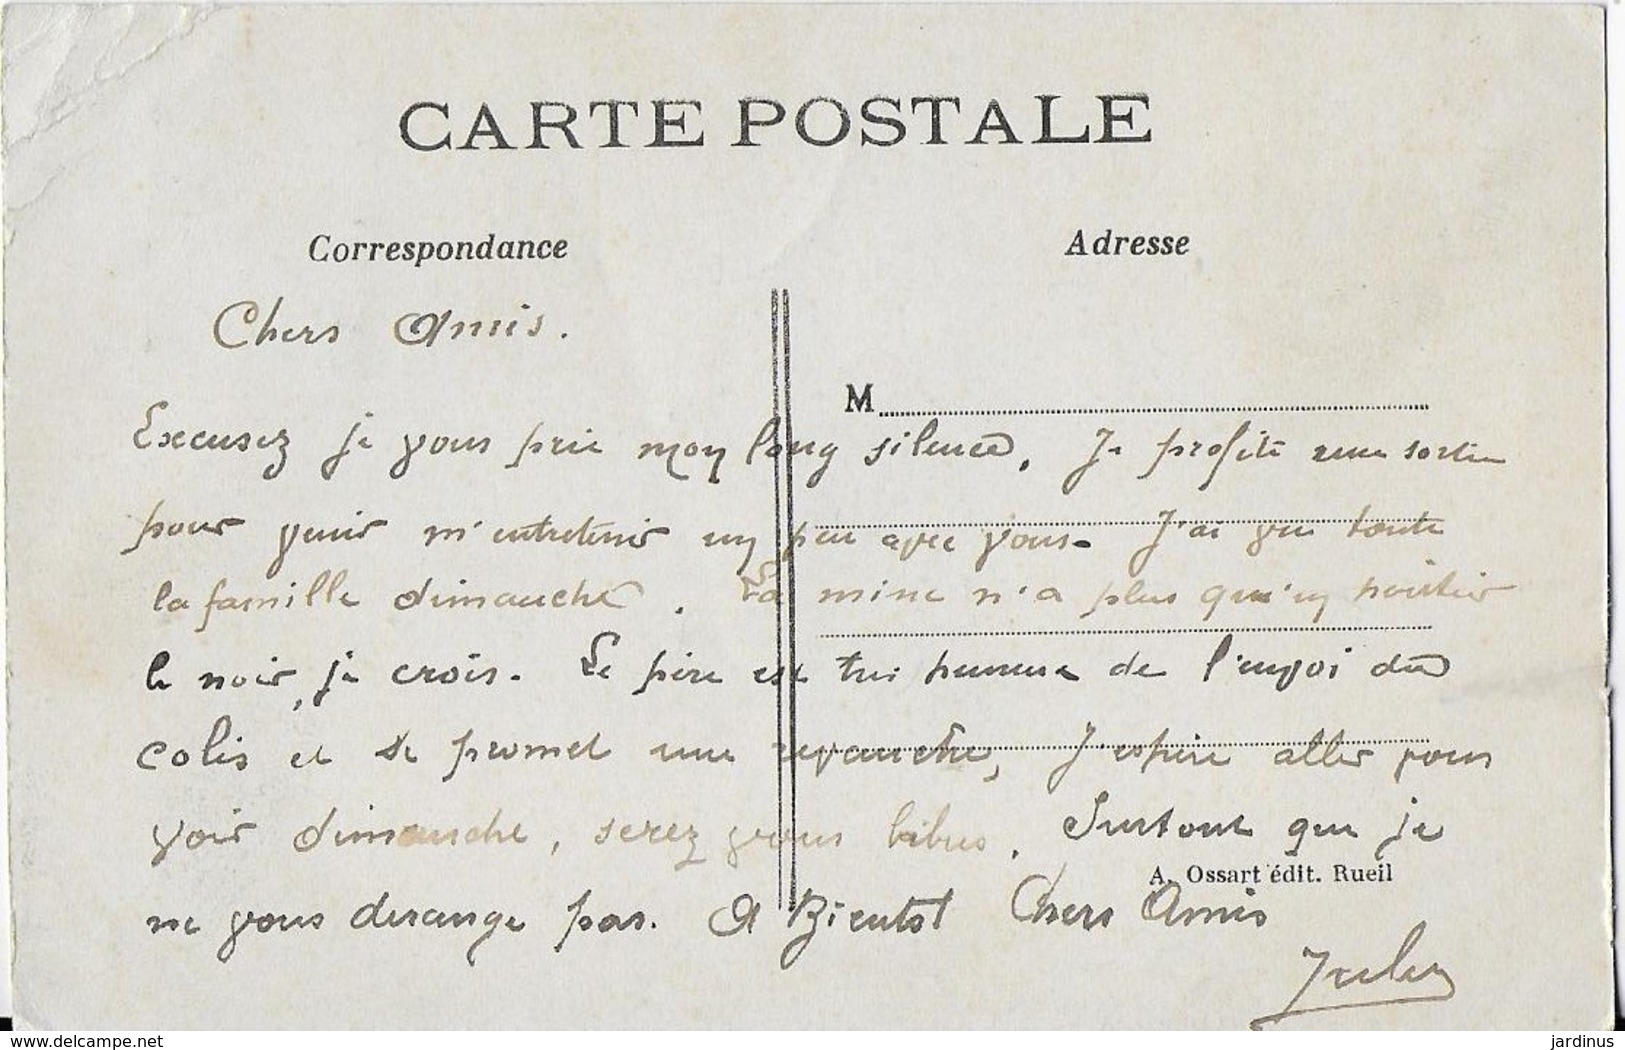 CARTE POSTALE
Correspondance
Adresse
Chers Amis.
M
Excusez je vous prie mon long silence. Je profite une sortie
pour venir m'entretenir un peu avec vous. J'ai vu toute
la famille dimanche. La mine n'a plus qu'un
le noir, je crois. Le père est très heureux de l'envoi du
colis et se promet une revanche, J'espère aller vous
voir dimanche, serez vous libres. Surtout que je
A. Ossart édit. Rueil
ne vous derange pas. A Bientot Chers Amis
Jules
www.delcampe.net
jardinus